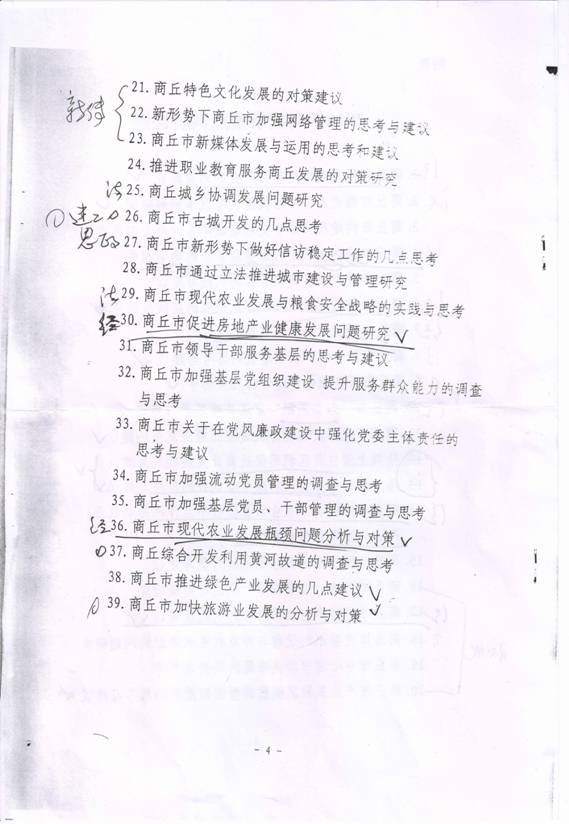 新传
21. 商丘特色文化发展的对策建议
22. 新形势下商丘市加强网络管理的思考与建议
23. 商丘市新媒体发展与运用的思考和建议
24. 推进职业教育服务商丘发展的对策研究
法 25. 商丘城乡协调发展问题研究
26. 商丘市古城开发的几点思考
思政 27. 商丘市新形势下做好信访稳定工作的几点思考
28. 商丘市通过立法推进城市建设与管理研究
法 29. 商丘市现代农业发展与粮食安全战略的实践与思考
经 30. 商丘市促进房地产业健康发展问题研究 ✓
31. 商丘市领导干部服务基层的思考与建议
32. 商丘市加强基层党组织建设 提升服务群众能力的调查
与思考
33. 商丘市关于在党风廉政建设中强化党委主体责任的
思考与建议
34. 商丘市加强流动党员管理的调查与思考
35. 商丘市加强基层党员、干部管理的调查与思考
经 36. 商丘市现代农业发展瓶颈问题分析与对策 ✓
37. 商丘综合开发利用黄河故道的调查与思考
38. 商丘市推进绿色产业发展的几点建议 ✓
39. 商丘市加快旅游业发展的分析与对策 ✓
- 4 -